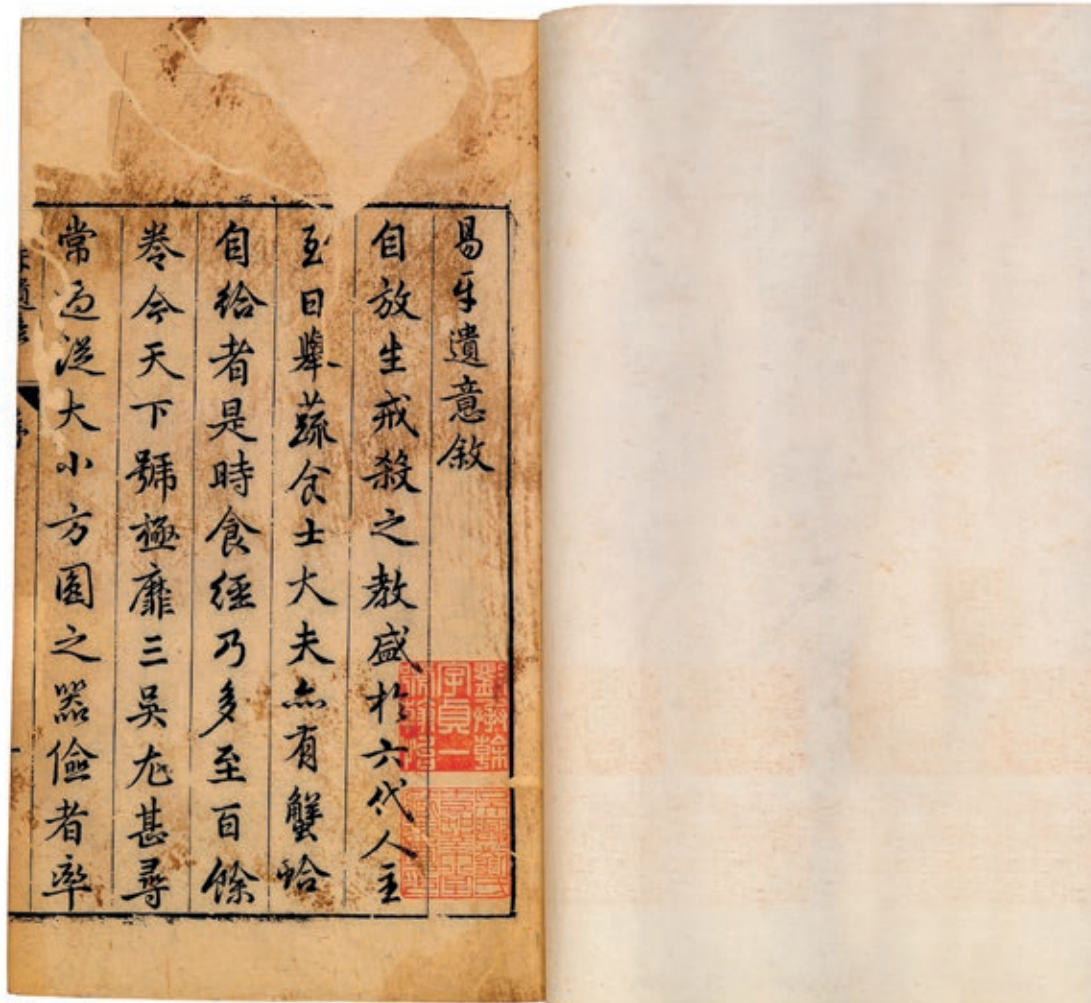 易牙遺意敘
自放生戒殺之教盛於六代人主
至日舉蔬食士大夫亦有蟹蛤
自給者是時食經乃多至百餘
卷今天下號極靡三吳尤甚尋
常過從大小方圓之器儉者率
劉承幹
字貞一
號翰怡
吳興劉氏
嘉業堂